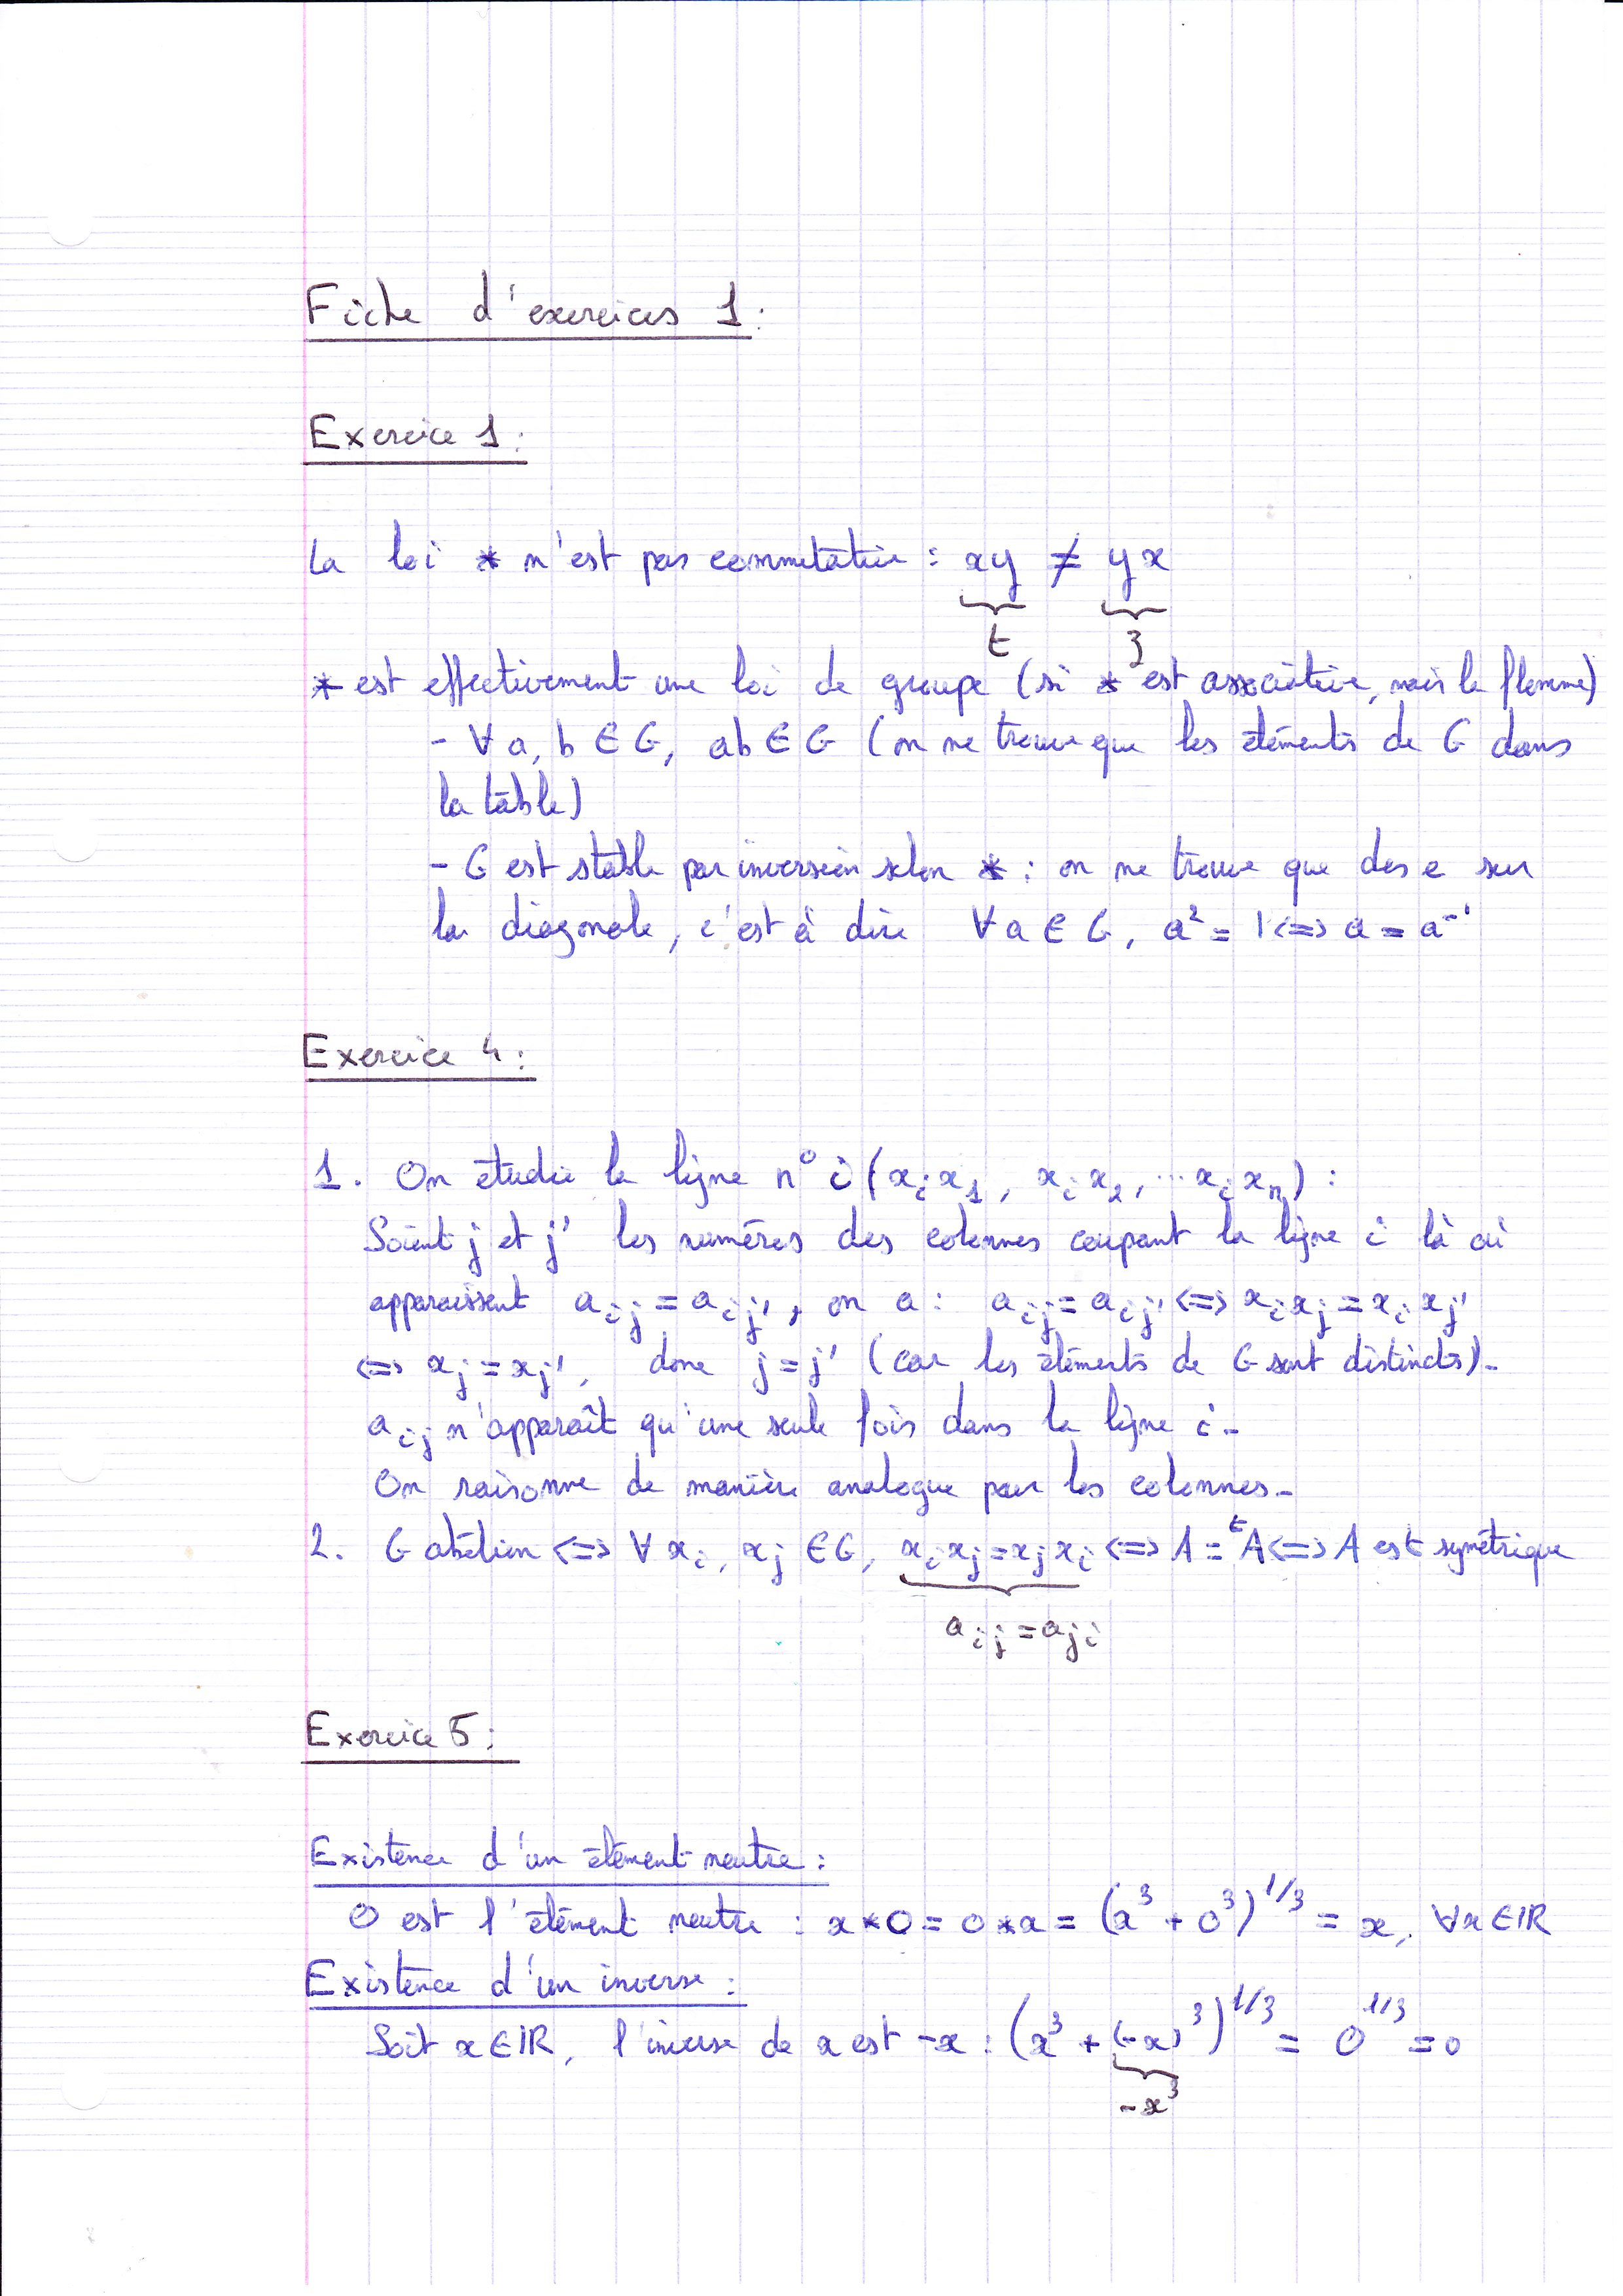 Fiche d'exercices 1:
Exercice 1:
La loi * n'est pas commutative : xy ≠ yx
t z
* est effectivement une loi de groupe (si * est associative, mais la flemme)
- ∀ a, b ∈ G, ab ∈ G (on ne trouve que les éléments de G dans
la table)
- G est stable par inversion selon * : on ne trouve que des e sur
la diagonale, c'est à dire ∀ a ∈ G, a² = 1 <=> a = a⁻¹
Exercice 4:
1. On étudie la ligne n° i (xᵢx₁, xᵢx₂, ... xᵢxₙ) :
Soient j et j' les numéros des colonnes coupant la ligne i là où
apparaissent aᵢⱼ = aᵢⱼ', on a : aᵢⱼ = aᵢⱼ' <=> xᵢxⱼ = xᵢxⱼ'
<=> xⱼ = xⱼ', donc j = j' (car les éléments de G sont distincts).
aᵢⱼ n'apparaît qu'une seule fois dans la ligne i.
On raisonne de manière analogue pour les colonnes.
2. G abélien <=> ∀ xᵢ, xⱼ ∈ G, xᵢxⱼ = xⱼxᵢ <=> A = ᵗA <=> A est symétrique
aᵢⱼ = aⱼᵢ
Exercice 5:
Existence d'un élément neutre :
0 est l'élément neutre : x * 0 = 0 * x = (x³ + 0³)^1/3 = x, ∀x ∈ ℝ
Existence d'un inverse :
Soit x ∈ ℝ, l'inverse de x est -x : (x³ + (-x)³)^1/3 = 0^1/3 = 0
-x³